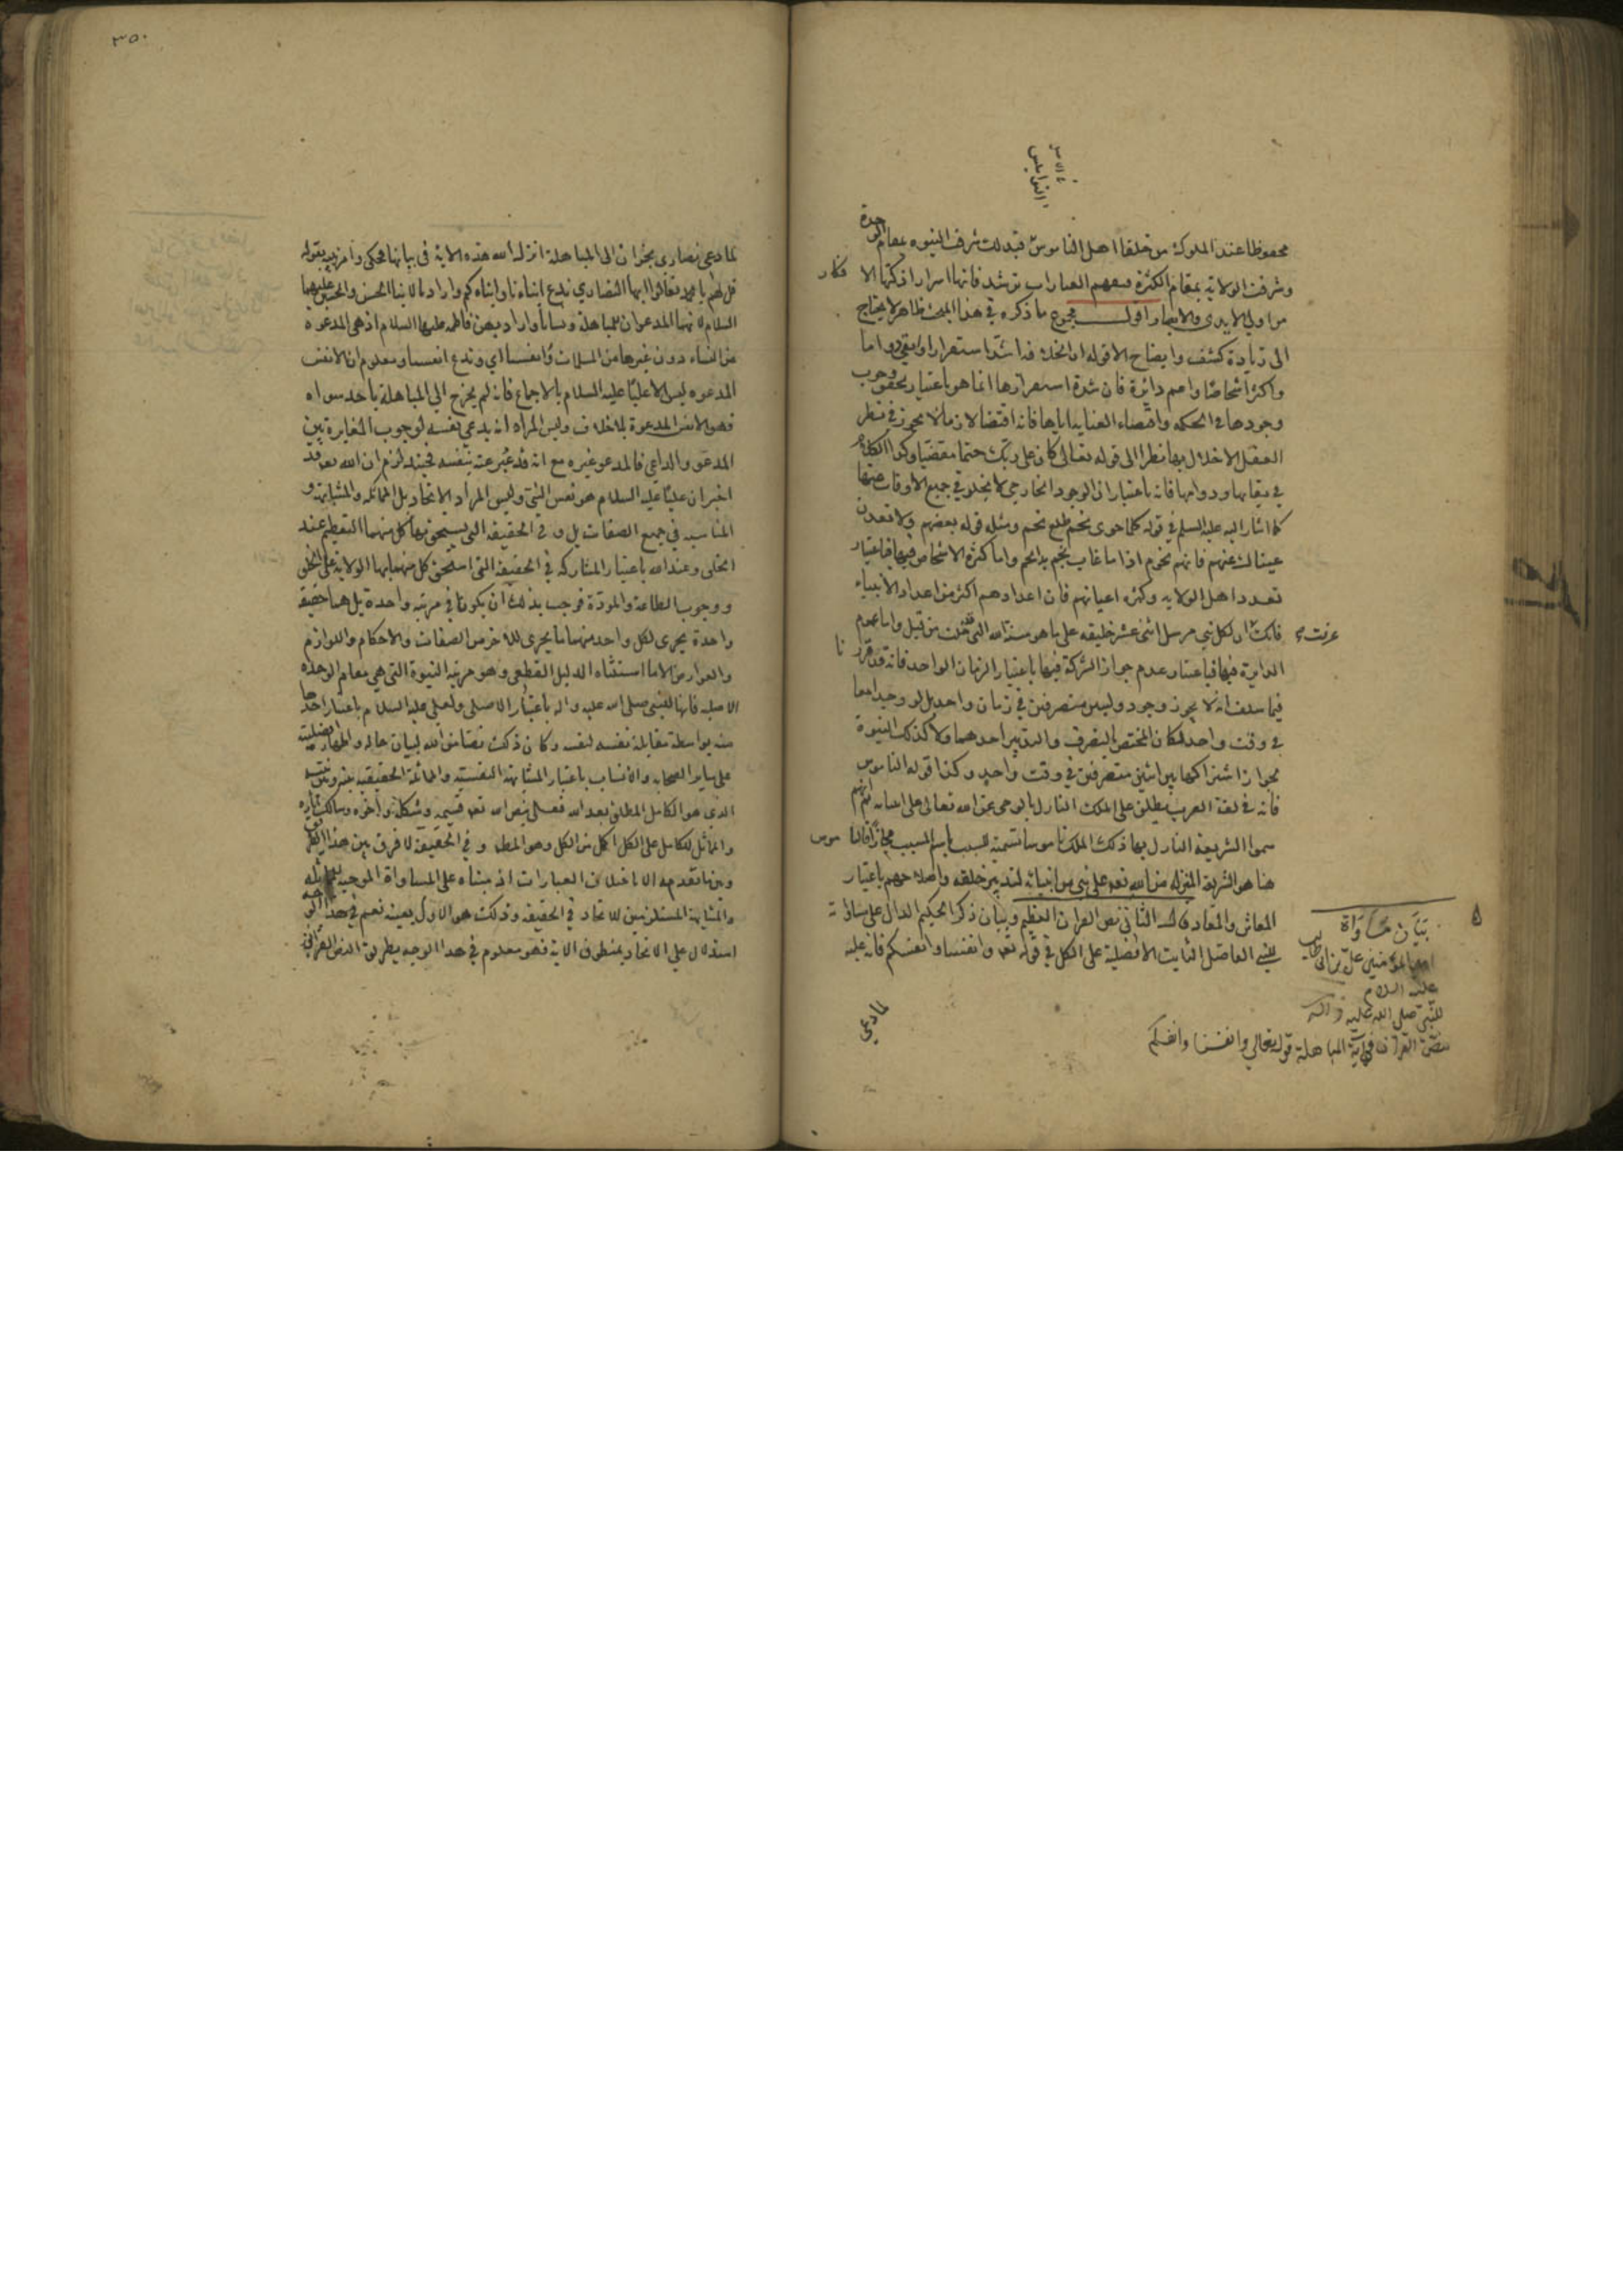 محفوظا عند الملوك من خلفا اهل الناموس فبذلك شرف النبوه بمقام الوحدة
وشرف الولاية بمقام الكثرة فبعهم العبارات ترشد فانها اسرار اذكتها الافكار
من اولي الايدي والابصار اقول مجموع ما ذكره في هذا المبحث ظاهر لا يحتاج
الى زيادة كشف وايضاح الا قوله او الخلافه اشد استقرارا وابقى دواما
واكثر اشخاصا واعم دائرة فان شدة استقرارها انما هو باعتبار تحقق وجوب
وجودها في الحكمه واقتضاء العنايه اياها فانه اقتضا لازما لا يجوز في نظر
العقل الاخلال بها نظرا الى قوله تعالى كان على ربك حتما مقضيا وكذا الكلام
في بقايها ودوامها فانه باعتبار ان الوجود الخارجي لا يخلو في جميع الاوقات عنها
كما اشار اليه عليه السلم في قوله كلما خوى نجم طلع نجم ومثله قوله بعضهم ولا تعدن
عيناك عنهم فانهم نجوم اذا ما غاب نجم بدا نجم واما كثرة الاشخاص فيها فباعتبار
تعدد اهل الولايه وكثره اعيانهم فان اعدادهم اكثر من اعداد الانبياء
عرفت فانك ان لكل نبي مرسل اثنى عشر خليفه على ما هو سنة الله التي قد خلت من قبل واما عموم
الدايرة فيها فباعتبار عدم جواز الشركة فيها باعتبار الزمان الواحد فانه قد قررنا
فيما سلف انه لا يجوز وجود وليين متصرفين في زمان واحد بل لو وجدا معا
في وقت واحد لكان المختص بالتصرف والتدبير احدهما ولا كذلك النبوة
لجواز اشتراكها بين اثنين متصرفين في وقت واحد وكذا قوله الناموس
فانه في لغة العرب يطلق على الملك النازل بالوحي عن الله تعالى على انبيائه ثم انهم
سموا الشريعة النازل بها ذلك الملك ناموسا تسمية للسبب باسم المسبب مجازا فالناموس
هنا هو الشريعة المنزله من الله تعه على نبي من انبيائه لتدبير خلقه واصلاحهم باعتبار
المعاش والمعاد قال الثاني نص القران العظيم وبيان ذكر الحكيم الدال على مساواته
للنبي الفاضل الثابت الافضلية على الكل في قوله تعه وانفسنا وانفسكم فانه عليه
لما دعي
بيان مساواة
امير المؤمنين علي بن ابي طالب
عليه السلام
للنبي صلى الله عليه واله
بنص القران في آية المباهلة قوله تعالى وانفسنا وانفسكم
٣٥٠
لما دعى نصارى نجران الى المباهلة انزل الله هذه الاية في بيانها فحكى وامر نبيه بقوله
قل لهم يا محمد تعالوا ايها النصارى ندع ابناءنا وابناءكم واراد بالابنا الحسن والحسين عليهما
السلام لانهما المدعوان للمباهلة ونسانا واراد بهن فاطمه عليها السلام اذ هي المدعوه
من النساء دون غيرها من المسلمات وانفسنا اي وندع انفسنا ومعلوم ان الانفس
المدعوه ليس الا عليا عليه السلام بالاجماع فانه لم يخرج الى المباهلة باحد سواه
فهو الانفس المدعوة بلا خلاف وليس المراد انه يدعي نفسه لوجوب المغايرة بين
المدعو والداعي فالمدعو غيره مع انه قد عبر عنه بنفسه فحينئذ لزم ان الله تعه قد
اخبر ان عليا عليه السلام هو نفس النبي وليس المراد الاتحاد بل المماثله والمشابهة و
المناسبه في جميع الصفات بل و في الحقيقه التي يستحق بها كل منهما التعظيم عند
الخلق وعند الله باعتبار المشاركه في الحقيقة التي استحق كل منهما بها الولاية على الخلق
ووجوب الطاعة والمودة فوجب بذلك ان يكونا في مرتبه واحدة بل هما حقيقة
واحدة يجرى لكل واحد منهما ما يجرى للاخر من الصفات والاحكام واللوازم
والعوارض الا ما استثناه الدليل القطعي وهو مرتبه النبوة التي هي مقام الوحده
الاصليه فانها للنبي صلى الله عليه واله باعتبار الاصلي ولعلي عليه السلام باعتبار اخذها
منه بواسطة مقابلة نفسه لنفسه وكان ذلك نصا من الله لبيان حاله واظهار افضليته
على ساير الصحابه والانساب باعتبار المشابهة النفسيه والمماثلة الحقيقيه بينه وبين نبيه
الذي هو الكامل المطلق بعد الله فعلي بنص الله تعه قسيمه وشكله واخوه وسالك اثاره
والمماثل للكامل على الكل اكمل من الكل وهو المطلوب و في الحقيقة لا فرق بين هذا الكلام
وبين ما تقدمه الا باختلاف العبارات اذ مبناه على المساواة الموجبه للمماثله
والمشابهة المستلزمين للاتحاد في الحقيقه وذلك هو الاول بعينه نعم في هذا الوجه
استدلال على الاتحاد بمنطوق الاية فهو معلوم في هذا الوجه بطريق النص القرآني